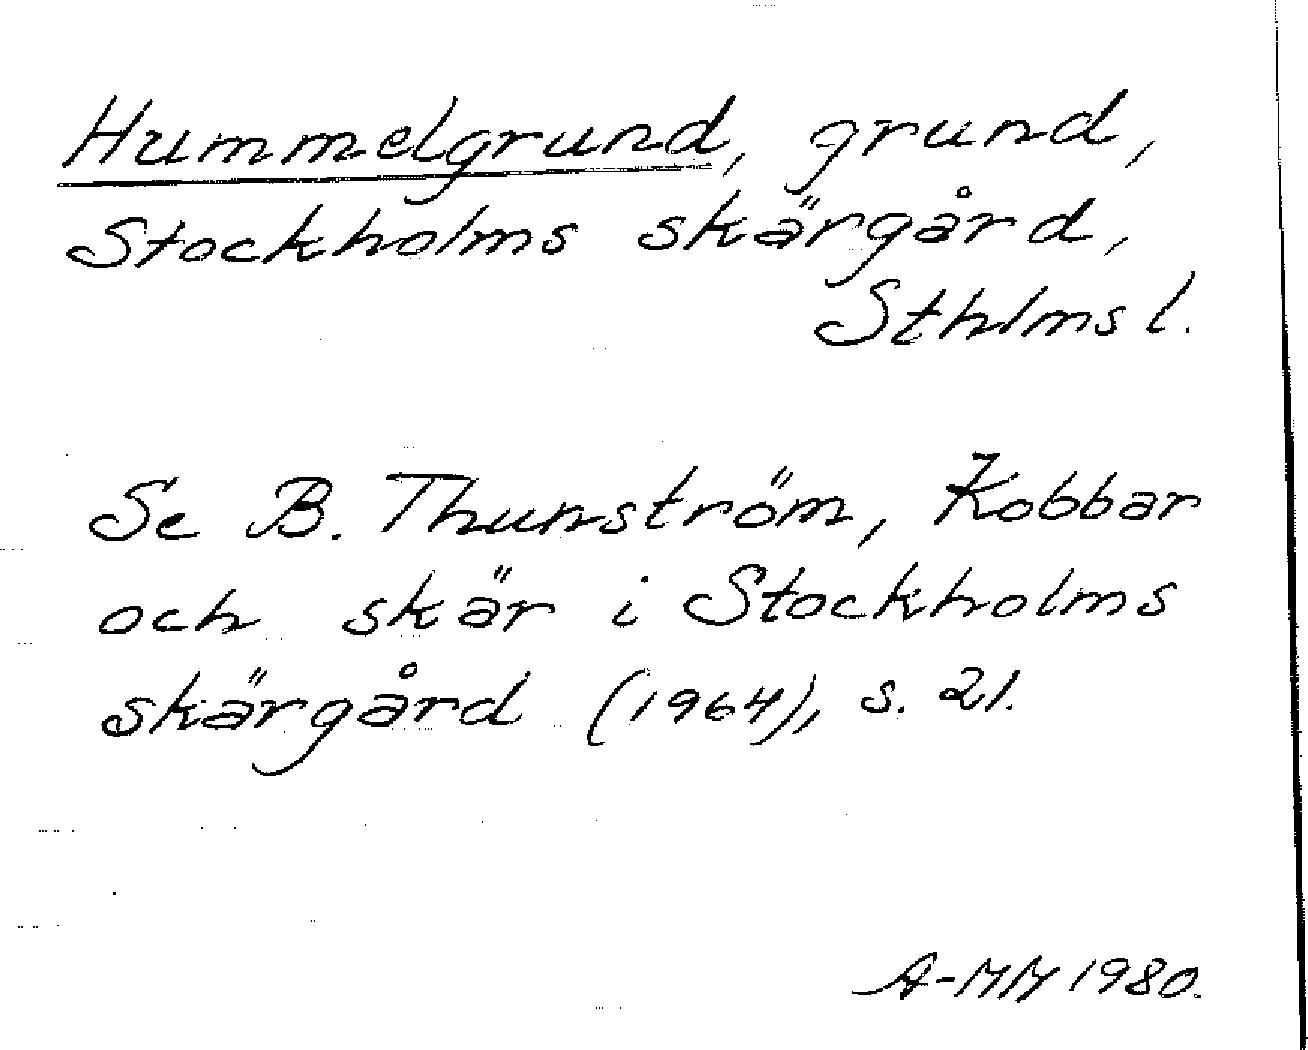 Hummelgrund, grund,
Stockholms skärgård,
Sthlms l.
Se B. Thunström, Kobbar
och skär i Stockholms
skärgård (1964), s. 21.
A-MM 1980.